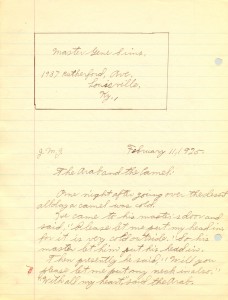 Master Gene Sims.
1937 Rutherford, Ave.
Louisville.
Ky.,
February 11, 1925.
The Arab and the Camel.
One night after going over the desert
all day a camel was cold.
He came to his master's door and
said, "Please let me put my head in,
for it is very cold outside." So his
master let him put his head in.
Then presently he said, "Will you
please let me put my neck in also?"
"With all my heart," said the Arab.